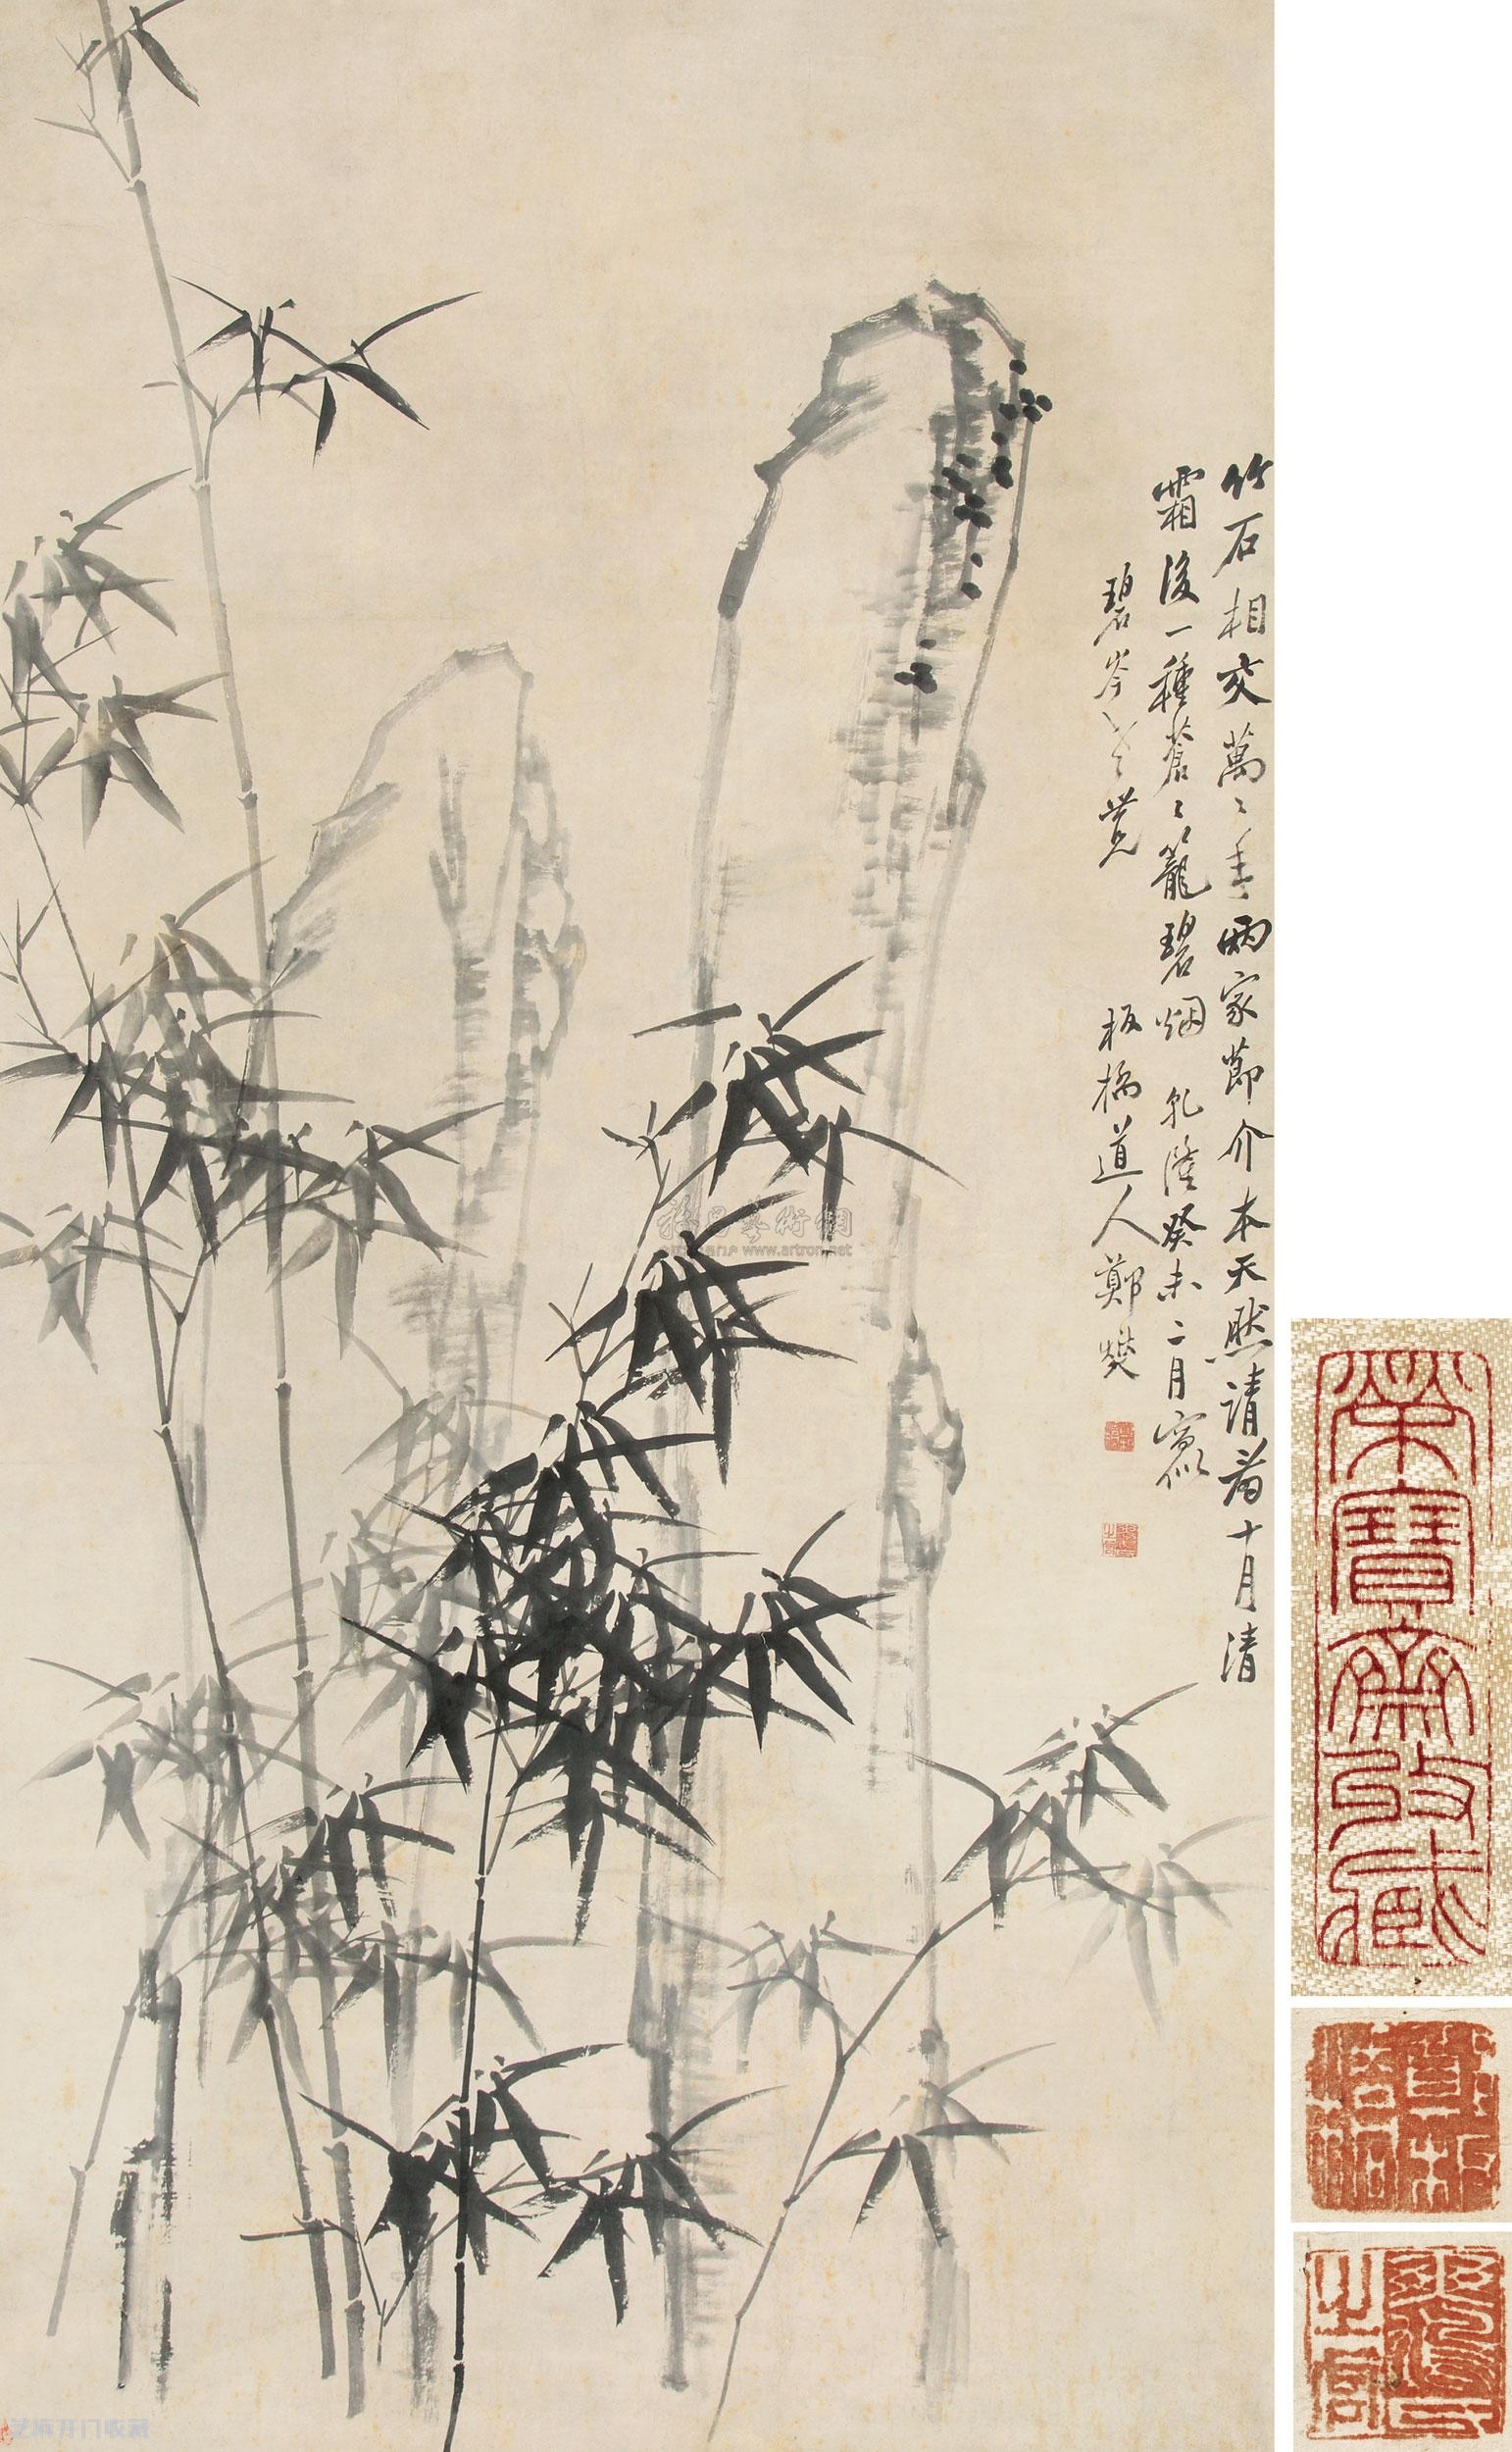 竹石相交萬〻年兩家節介本天然請看十月清
霜後一種蒼〻籠碧烟 乾隆癸未二月寫似
碧岑
板橋道人鄭燮
榮寶齋
藏
www.artron.net
艺麻开门收藏